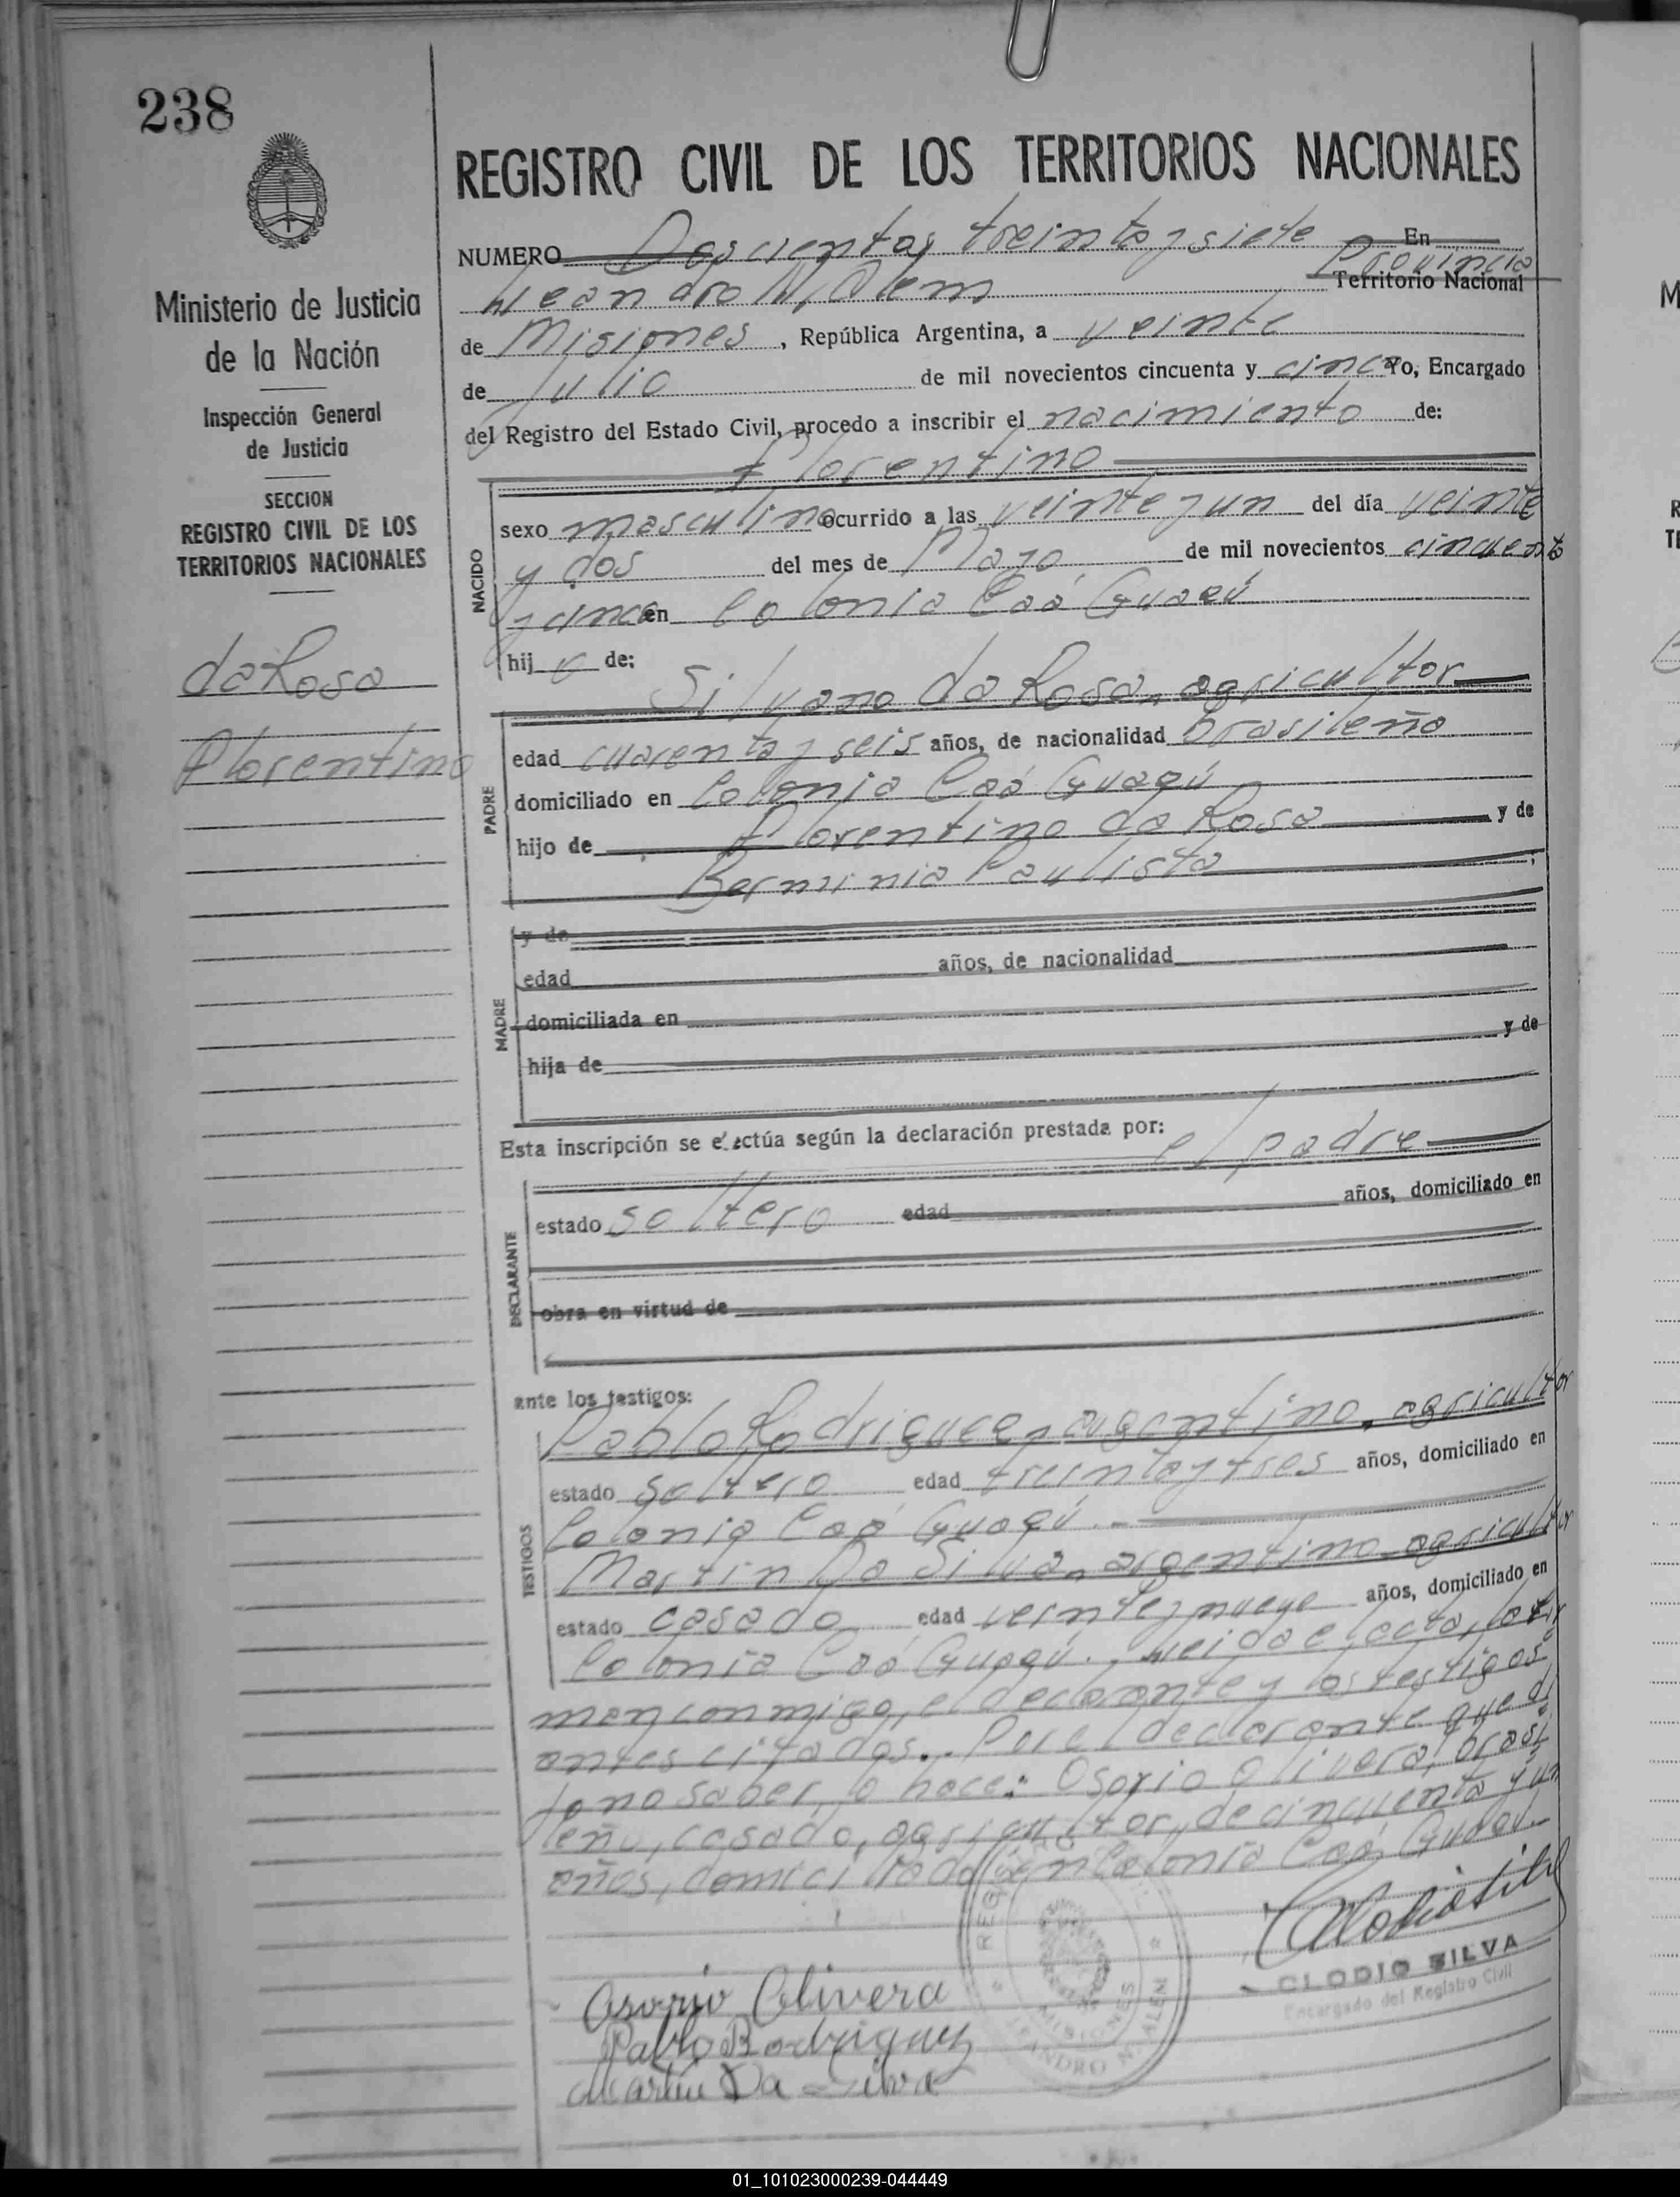 238
REGISTRO CIVIL DE LOS TERRITORIOS NACIONALES
Ministerio de Justicia
de la Nación
Inspección General
de Justicia
SECCION
REGISTRO CIVIL DE LOS
TERRITORIOS NACIONALES
da Rosa
Florentino
NUMERO Doscientos treinta y siete En
Provincia
Leandro N. Alem Territorio Nacional
de Misiones, República Argentina, a veinte
de Julio de mil novecientos cincuenta y cinco Yo, Encargado
del Registro del Estado Civil, procedo a inscribir el nacimiento de:
Florentino
NACIDO
sexo masculino ocurrido a las veinte y un del día veinte
y dos del mes de Mayo de mil novecientos cincuenta
y cinco en Colonia Caá Guazú
hijo de:
Silvano da Rosa, agricultor
PADRE
edad cuarenta y seis años, de nacionalidad brasileña
domiciliado en Colonia Caá Guazú
hijo de Florentino da Rosa y de
Paulista
MADRE
y de
edad años, de nacionalidad
domiciliada en
hija de y de
Esta inscripción se efectúa según la declaración prestada por: el padre
DECLARANTE
estado soltero edad años, domiciliado en
obra en virtud de
ante los testigos:
TESTIGOS
Pablo Rodriguez, argentino, agricultor
estado soltero edad treinta y tres años, domiciliado en
Colonia Caá Guazú.-
Martin Da Silva, argentino, agricultor
estado casado edad veinte y nueve años, domiciliado en
Colonia Caá Guazú. Leida el acta, la fir
man conmigo, el declarante y los testigos
antes citados. Por el declarante que di
jo no saber, lo hace: Osorio Olivera, brasi
leño, casado, agricultor, de cincuenta y un
años, domiciliado en Colonia Caá Guazú.-
REG
MISIONES
LEANDRO N. ALEM
CLODIO SILVA
Encargado del Registro Civil
Osorio Olivera
Pablo Rodriguez
Martin Da Silva
01_101023000239-044449